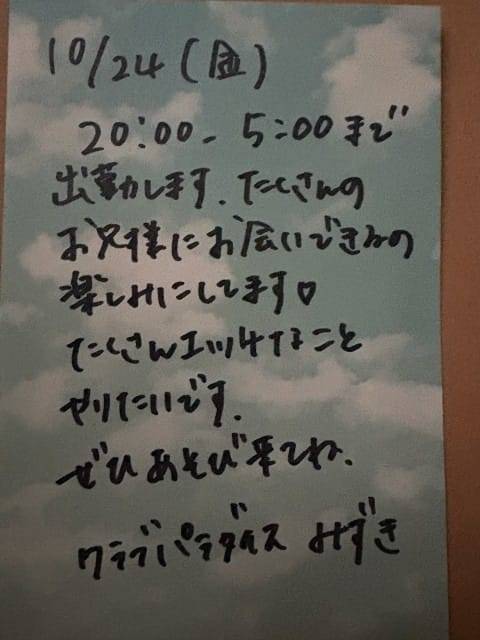 10/24(金)
20:00-5:00まで
出勤します.たくさんの
お兄様にお会いできるの
楽しみにしてます♡
たくさんエッチなこと
やりたいです.
ぜひあそび来てね.
クラブパラダイス みずき